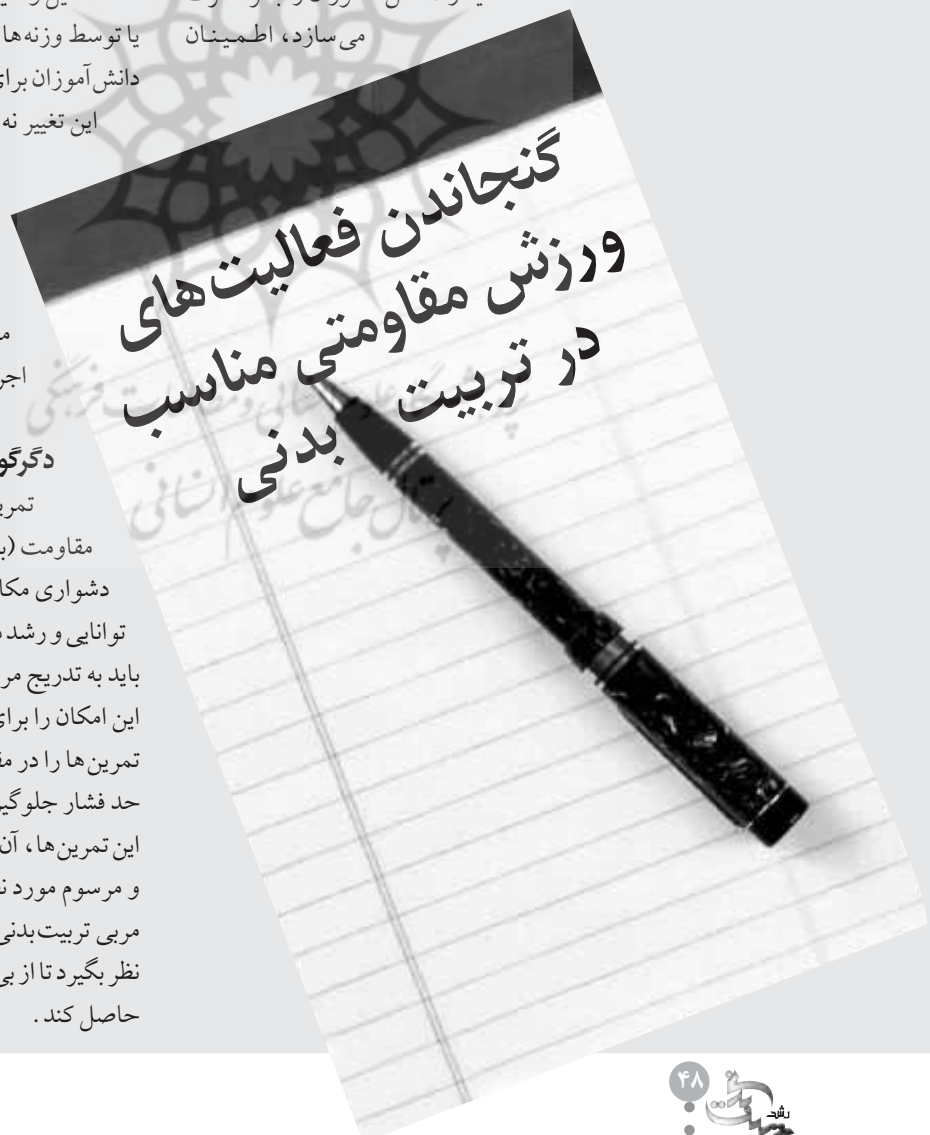 می‌سازد، اطـمـیـنـان
یا توسط وزنه‌ها
دانش‌آموزان برای
این تغییر نه
گنجاندن فعالیت‌های
ورزش مقاومتی مناسب
در تربیت بدنی
اجر
دگرگو
تمری
مقاومت (ب
دشواری مکا
توانایی و رشد
باید به تدریج مر
این امکان را برای
تمرین‌ها را در مق
حد فشار جلوگیر
این تمرین‌ها، آن
و مرسوم مورد نظ
مربی تربیت‌بدنی
نظر بگیرد تا از بی
حاصل کند.
جامع علوم انسانی
۴۸
رشد